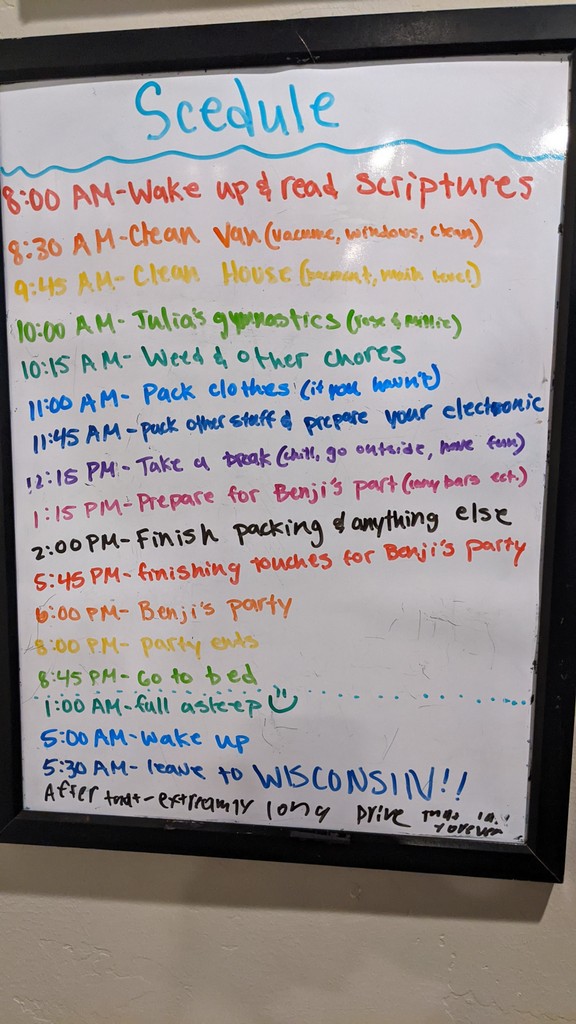 Scedule
8:00 AM-Wake up & read scriptures
8:30 AM-Clean Van (vacume, windows, clean)
9:45 AM-Clean House (basment, main level)
10:00 AM-Julia's gymnastics (
10:15 AM-Weed & other chores
11:00 AM-Pack clothes (if you havn't)
11:45 AM-pack other stuff & prepare your electronic
12:15 PM-Take a break (chill, go outside, have fun)
1:15 PM-Prepare for Benji's part ( bars ect.)
2:00 PM-Finish packing & anything else
5:45 PM-finishing touches for Benji's party
6:00 PM-Benji's party
8:00 PM-party ends
8:45 PM-Go to bed
1:00 AM-fall asleep
5:00 AM-wake up
5:30 AM-leave to WISCONSIN!!
After that-extreamly long Drive